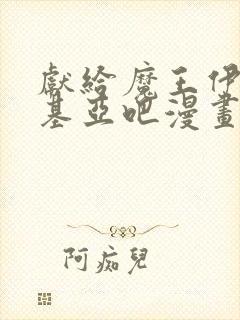 獻給魔王伊
基亞吧漫畫
阿痴兒